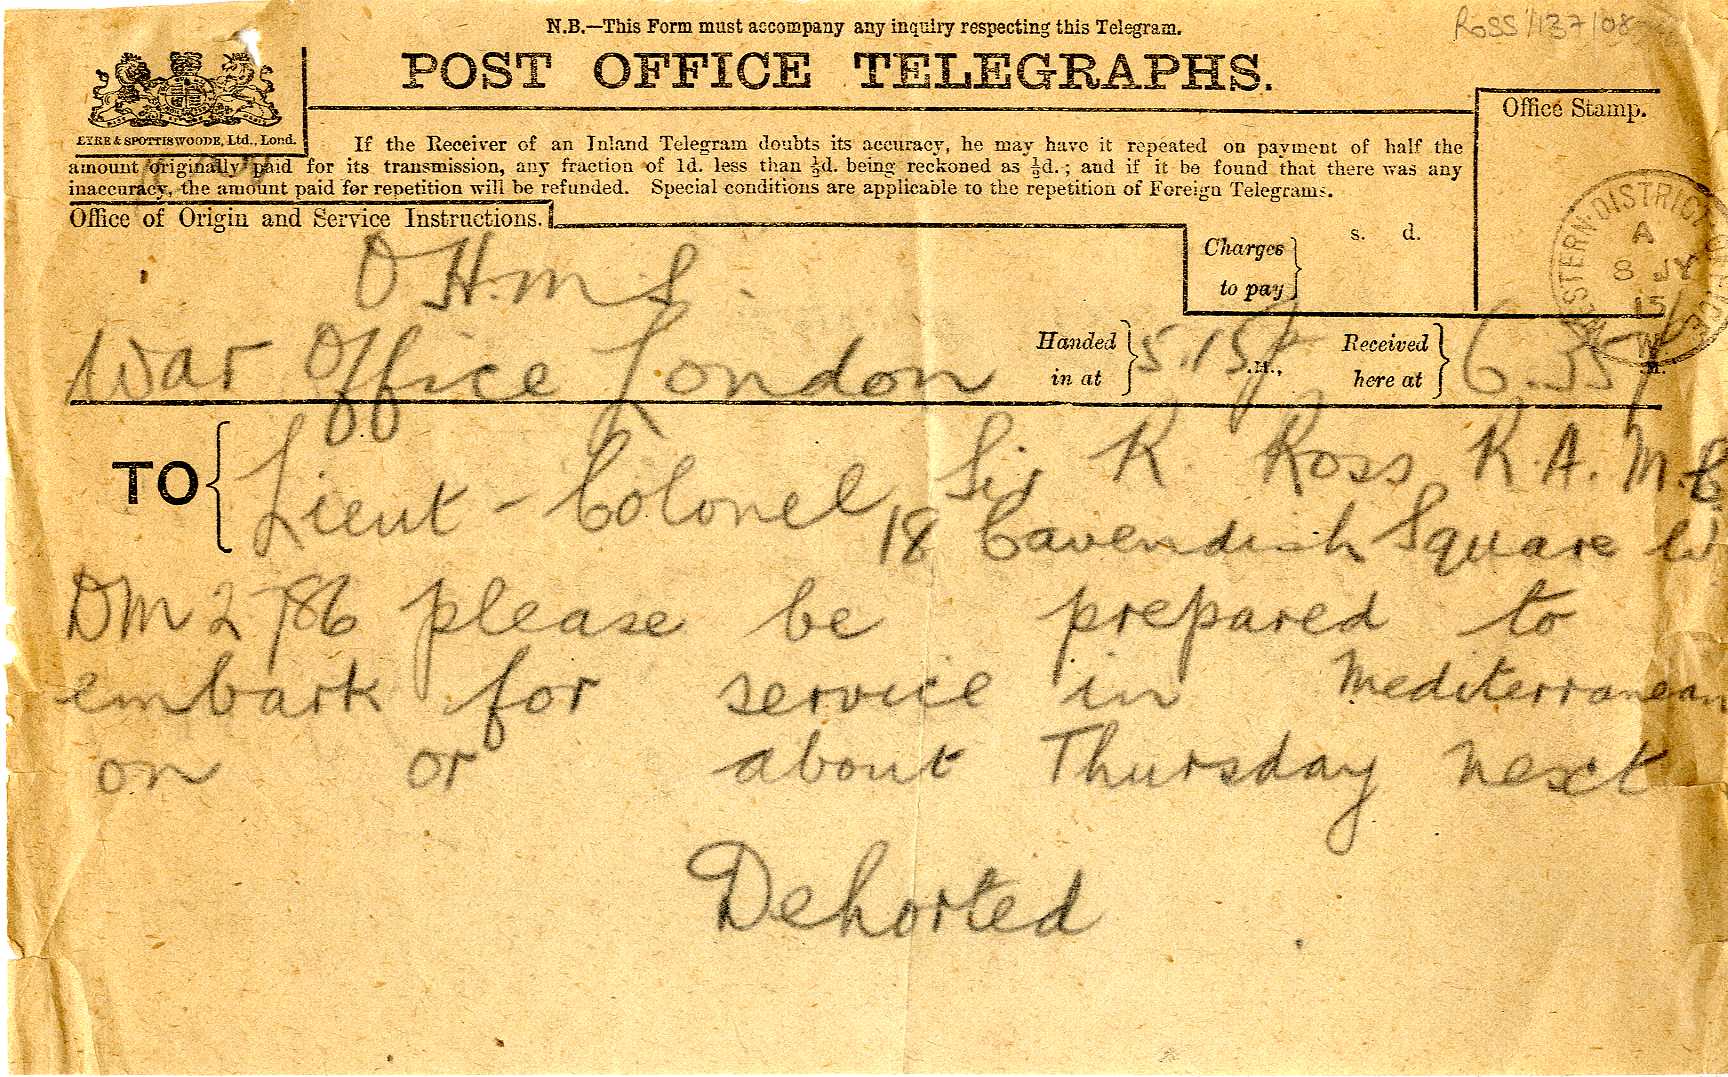 ROSS/137/08
N.B.—This Form must accompany any inquiry respecting this Telegram.
POST OFFICE TELEGRAPHS.
EYRE & SPOTTISWOODE, Ltd., Lond.
Office Stamp.
If the Receiver of an Inland Telegram doubts its accuracy, he may have it repeated on payment of half the
amount originally paid for its transmission, any fraction of 1d. less than ½d. being reckoned as ½d.; and if it be found that there was any
inaccuracy, the amount paid for repetition will be refunded. Special conditions are applicable to the repetition of Foreign Telegrams.
Office of Origin and Service Instructions.
Charges to pay } s. d.
WESTERN DISTRICT OFFICE
A
8 JY
15
W.
O H.M S.
War Office London
Handed in at } 5.15p .M.,
Received here at } 6.35p M.
TO { Lieut - Colonel Sir R. Ross R.A.M.C
18 Cavendish Square W
DM 2 786 please be prepared to
embark for service in Mediterranean
on or about Thursday next
Dehorted